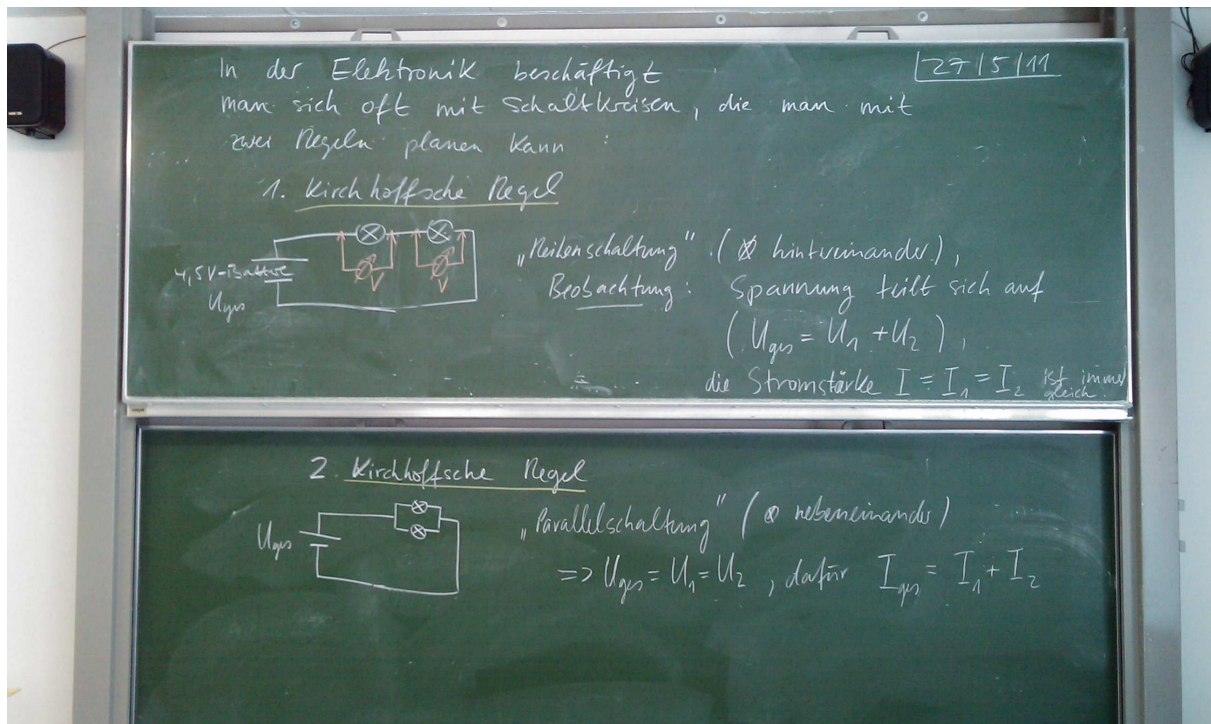 In der Elektronik beschäftigt
27/5/11
man sich oft mit Schaltkreisen, die man mit
zwei Regeln planen kann:
1. Kirchhoffsche Regel
„Reihenschaltung" (⊗ hintereinander),
4,5V-Battrie
Uges
V V
Beobachtung: Spannung teilt sich auf
(Uges = U1 + U2),
die Stromstärke I = I1 = I2 ist immer
gleich.
2. Kirchhoffsche Regel
Uges
„Parallelschaltung" (⊗ nebeneinander)
=> Uges = U1 = U2, dafür Iges = I1 + I2